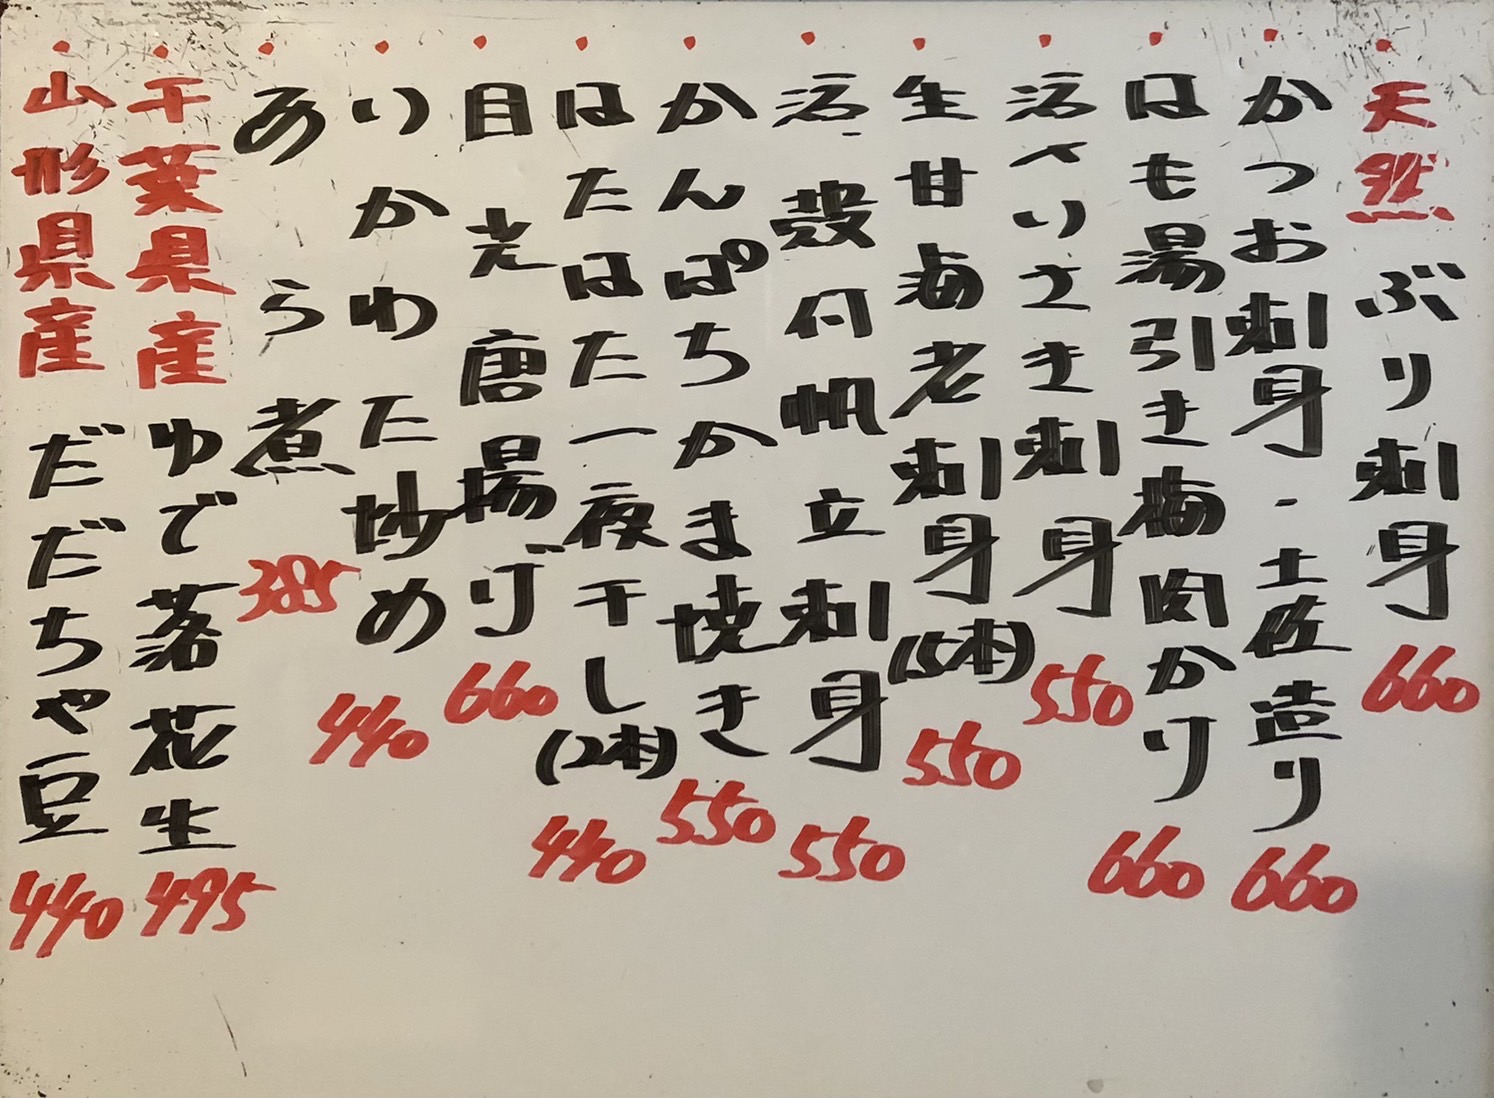 ・天然ぶり刺身 660
・かつお刺身・土佐造り 660
・はも湯引き梅肉かけ 660
・活へいさき刺身 550
・生甘海老刺身(5本) 550
・活殻付帆立刺身 550
・かんぱちかま焼き 550
・はたはた一夜干し(2本) 440
・目光唐揚げ 660
・いかわた炒め 440
・あら煮 385
・千葉県産ゆで落花生 495
・山形県産だだちゃ豆 440